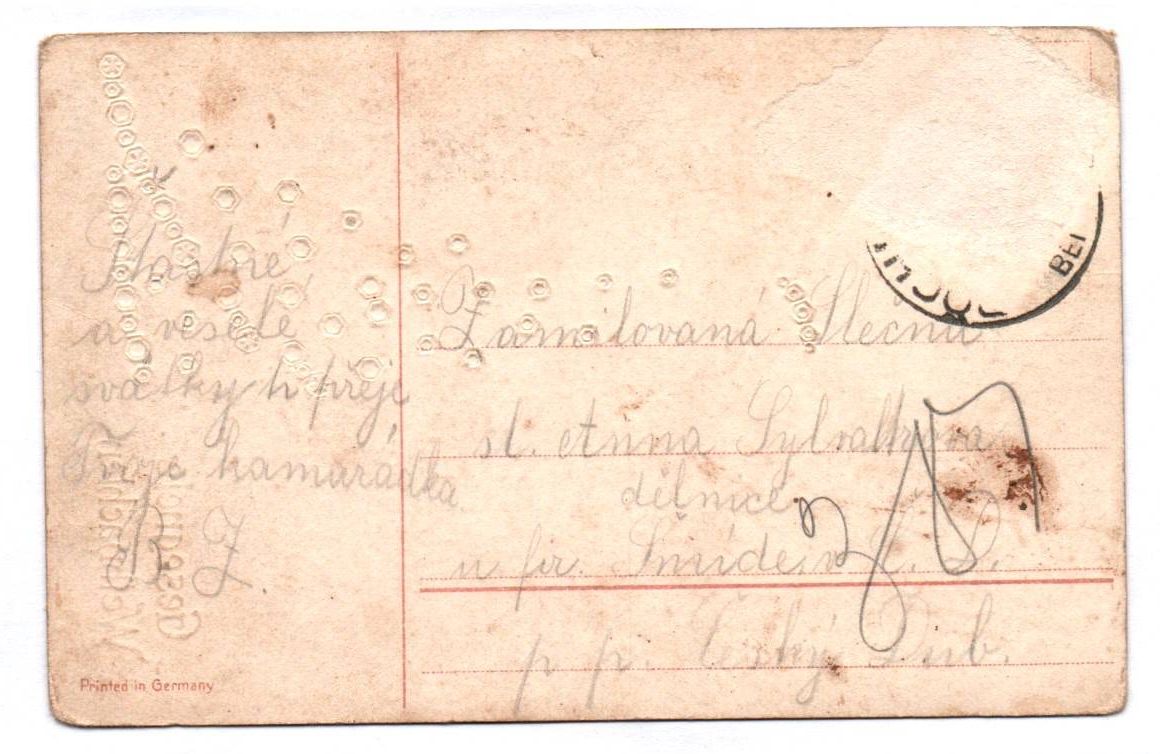 Šťastné
a veselé
svátky ti přeje
Tvoje kamarádka
R. J.
Zamilovaná Slečna
sl. Anna
dělnice
u fir. Šmíd
p. p. Český Dub.
BEI
Weihnachten
Gesegnete
Printed in Germany